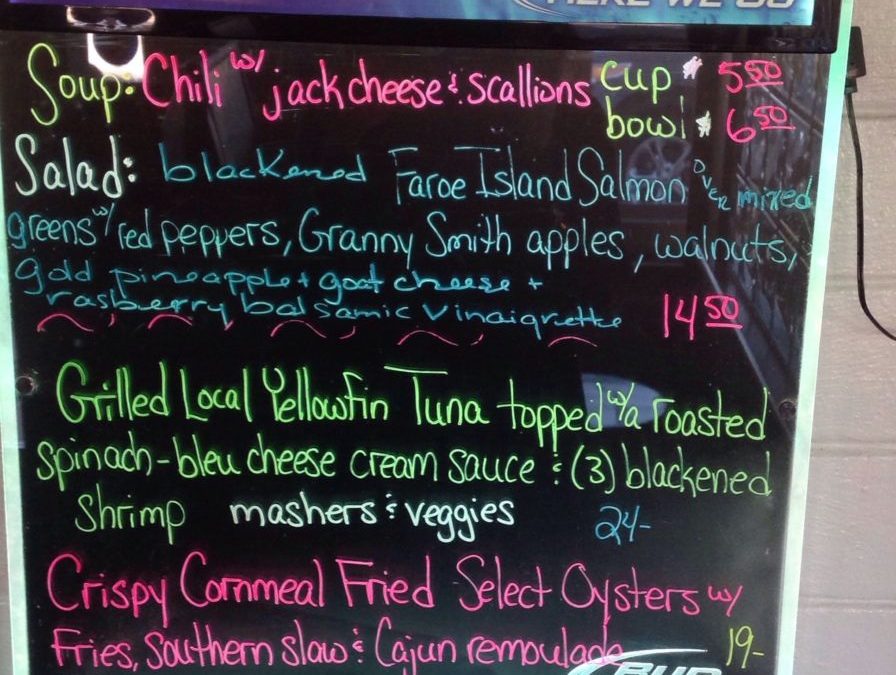 HERE WE GO
Soup: Chili w/ jack cheese & scallions cup $ 5 50
bowl $ 6 50
Salad: blackened Faroe Island Salmon over mixed
greens w/ red peppers, Granny Smith apples, walnuts,
gold pineapple + goat cheese +
rasberry balsamic vinaigrette 14 50
Grilled Local Yellowfin Tuna topped w/a roasted
spinach-bleu cheese cream sauce & (3) blackened
shrimp mashers & veggies 24-
Crispy Cornmeal Fried Select Oysters w/
Fries, Southern slaw & Cajun remoulade 19-
BUD